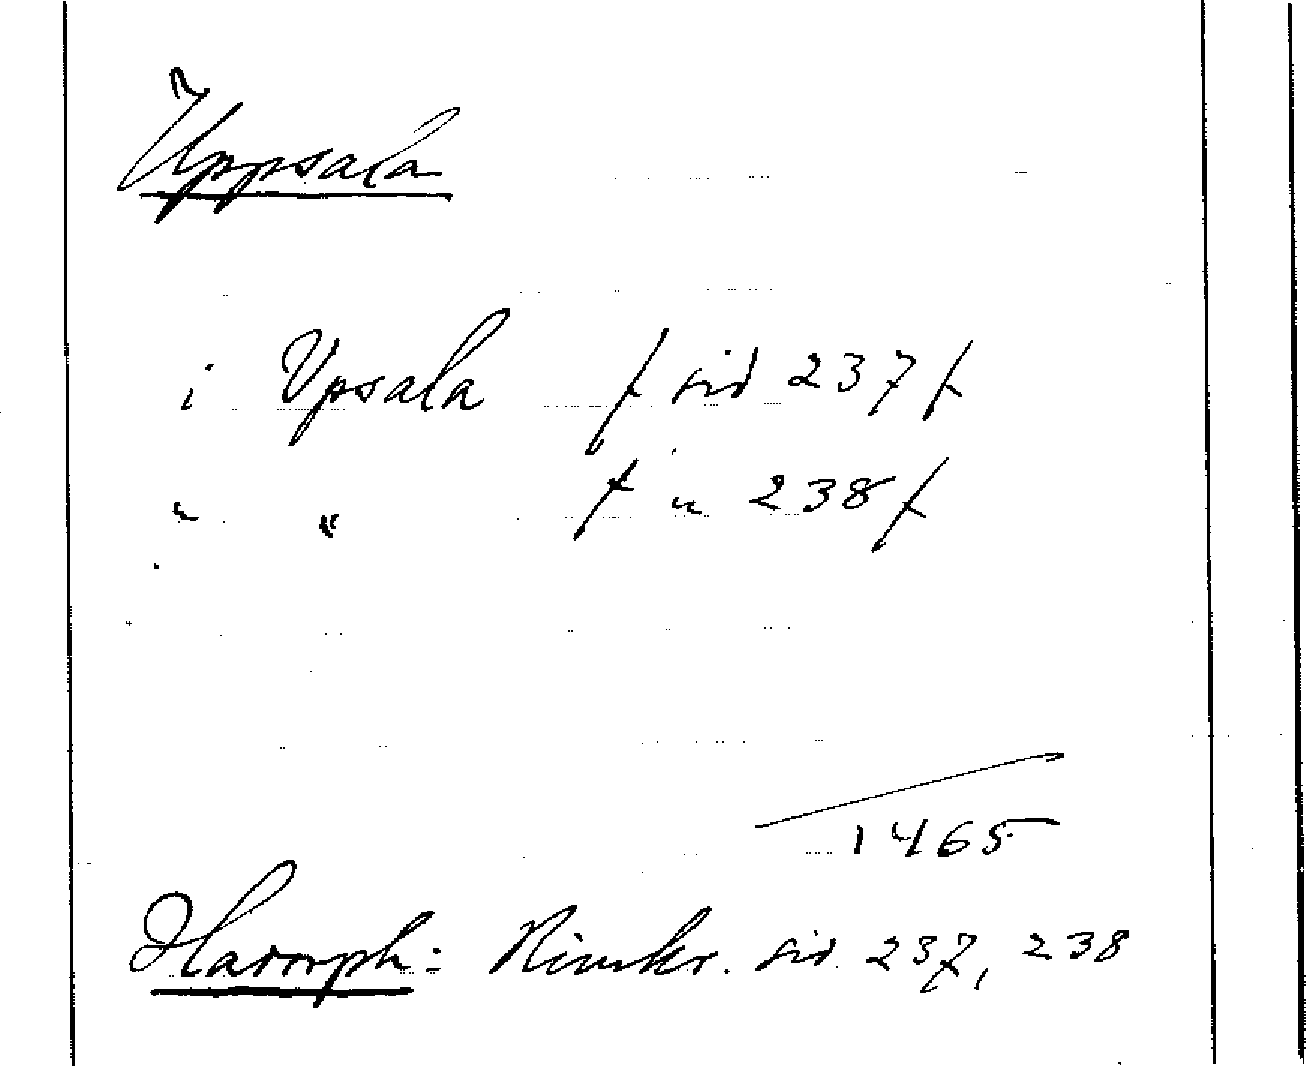 Uppsala
i Upsala / sid 237 /
" " / " 238 /
1465
Hadorph: Rimkr. sid. 237, 238